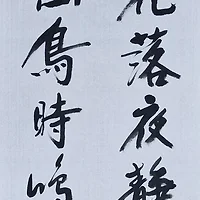 花落夜靜
山鳥時鳴